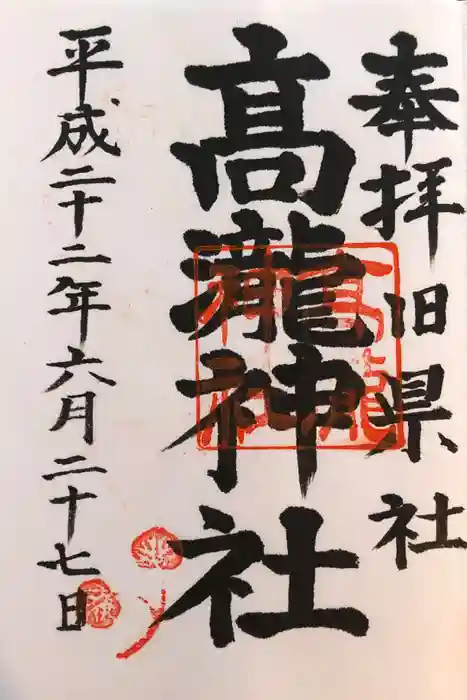 奉拝旧県社
髙瀧神社
平成二十二年六月二十七日